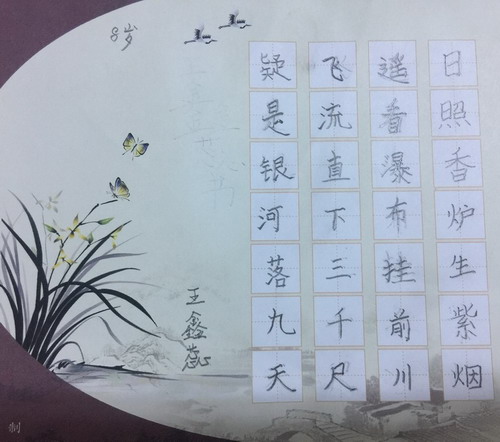 日照香炉生紫烟
遥看瀑布挂前川
飞流直下三千尺
疑是银河落九天
王鑫蕊
8岁
制